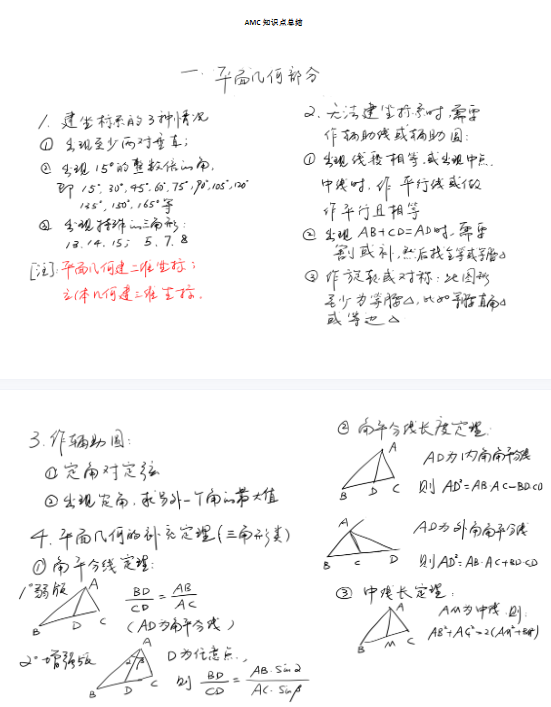 AMC 知识点总结
一. 平面几何部分
1. 建坐标系的3种情况
① 出现至少两对垂直;
② 出现15°的整数倍的角,
即 15°, 30°, 45°, 60°, 75°, 90°, 105°, 120°
135°, 150°, 165°等
③ 出现特殊的三角形:
13. 14. 15; 5. 7. 8
[注]: 平面几何建二维坐标;
立体几何建三维坐标.
2. 无法建坐标系时, 需要
作辅助线或辅助圆:
① 出现线段相等, 或出现中点.
中线时, 作 平行线或做
作平行且相等
② 出现 AB+CD=AD时, 需要
割或补, 然后找全等或等腰△
③ 作旋转或对称: 此图形
至少为等腰△, 比如等腰直角△
或等边△
3. 作辅助圆:
① 定角对定弦
② 出现定角, 求另外一个角的最大值
4. 平面几何的补充定理(三角形类)
① 角平分线定理:
1° 弱版
A
B
D
C
BD/CD = AB/AC
(AD为角平分线)
2° 增强版
A
α
β
B
D
C
D为任意点,
则 BD/CD = AB·sinα/AC·sinβ
② 角平分线长度定理:
A
B
D
C
AD为内角角平分线
则 AD²=AB·AC-BD·CD
A
B
C
D
AD为外角角平分线
则AD²=AB·AC+BD·CD
③ 中线长定理:
A
B
M
C
AM为中线, 则:
AB²+AC²=2(AM²+BM²)